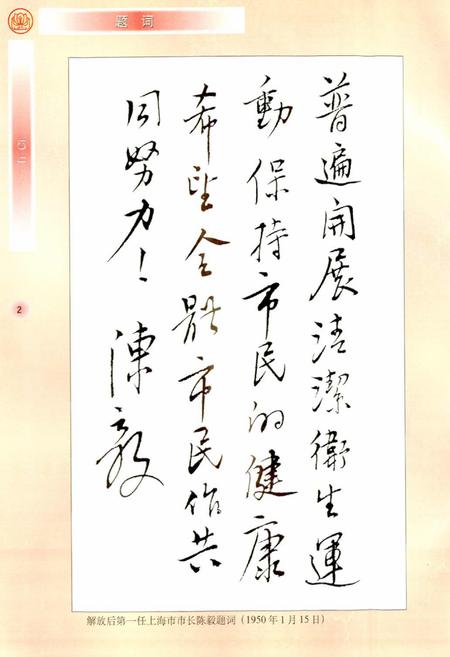 题 词
普遍開展清潔衛生運
動保持市民的健康
希望全體市民作共
同努力！陳毅
2
解放后第一任上海市市长陈毅题词（1950年1月15日）